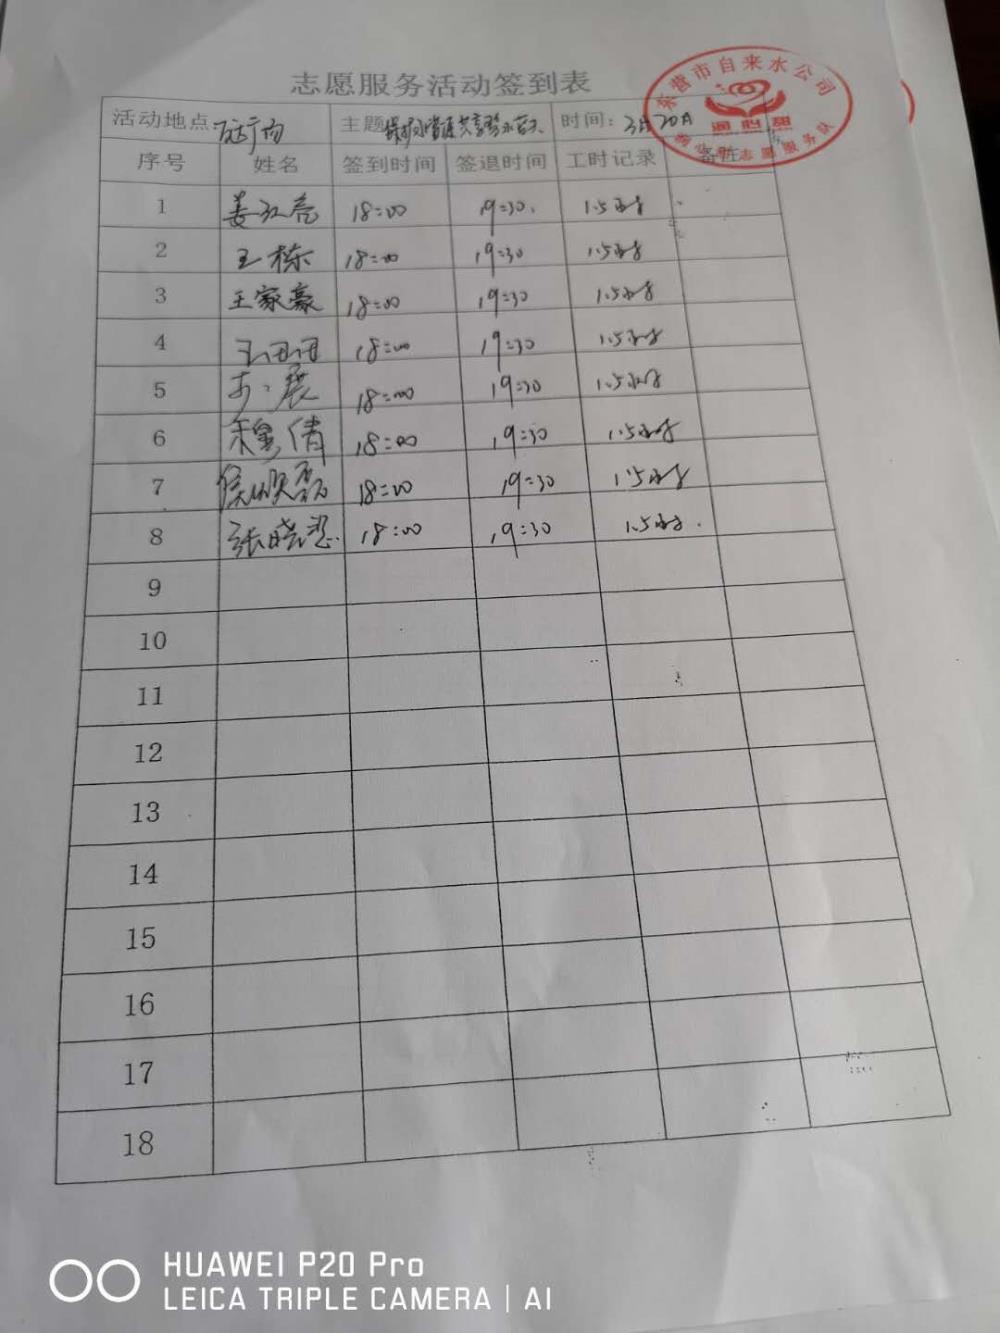 志愿服务活动签到表
东营市自来水公司
润心甜
志愿服务队
活动地点 万达广场 主题 保护水资源 共享碧水蓝天 时间: 3月20日
序号 姓名 签到时间 签退时间 工时记录 备注
1 姜红亮 18:00 19:30 1.5小时
2 王栋 18:00 19:30 1.5小时
3 王家豪 18:00 19:30 1.5小时
4 18:00 19:30 1.5小时
5 18:00 19:30 1.5小时
6 穆倩 18:00 19:30 1.5小时
7 18:00 19:30 1.5小时
8 张晓 18:00 19:30 1.5小时
9
10
11
12
13
14
15
16
17
18
HUAWEI P20 Pro
LEICA TRIPLE CAMERA | AI